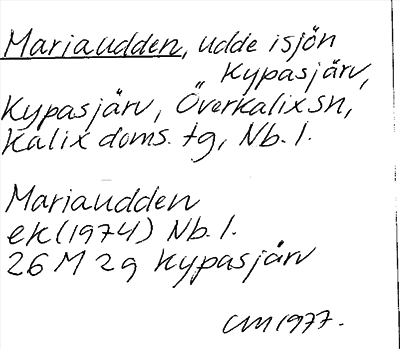 Mariaudden, udde i sjön
Kypasjärv,
Kypasjärv, Överkalix sn,
Kalix doms. tg, Nb. l.
Mariaudden
ek (1974) Nb. l.
26 M 2g Kypasjärv
CM 1977.